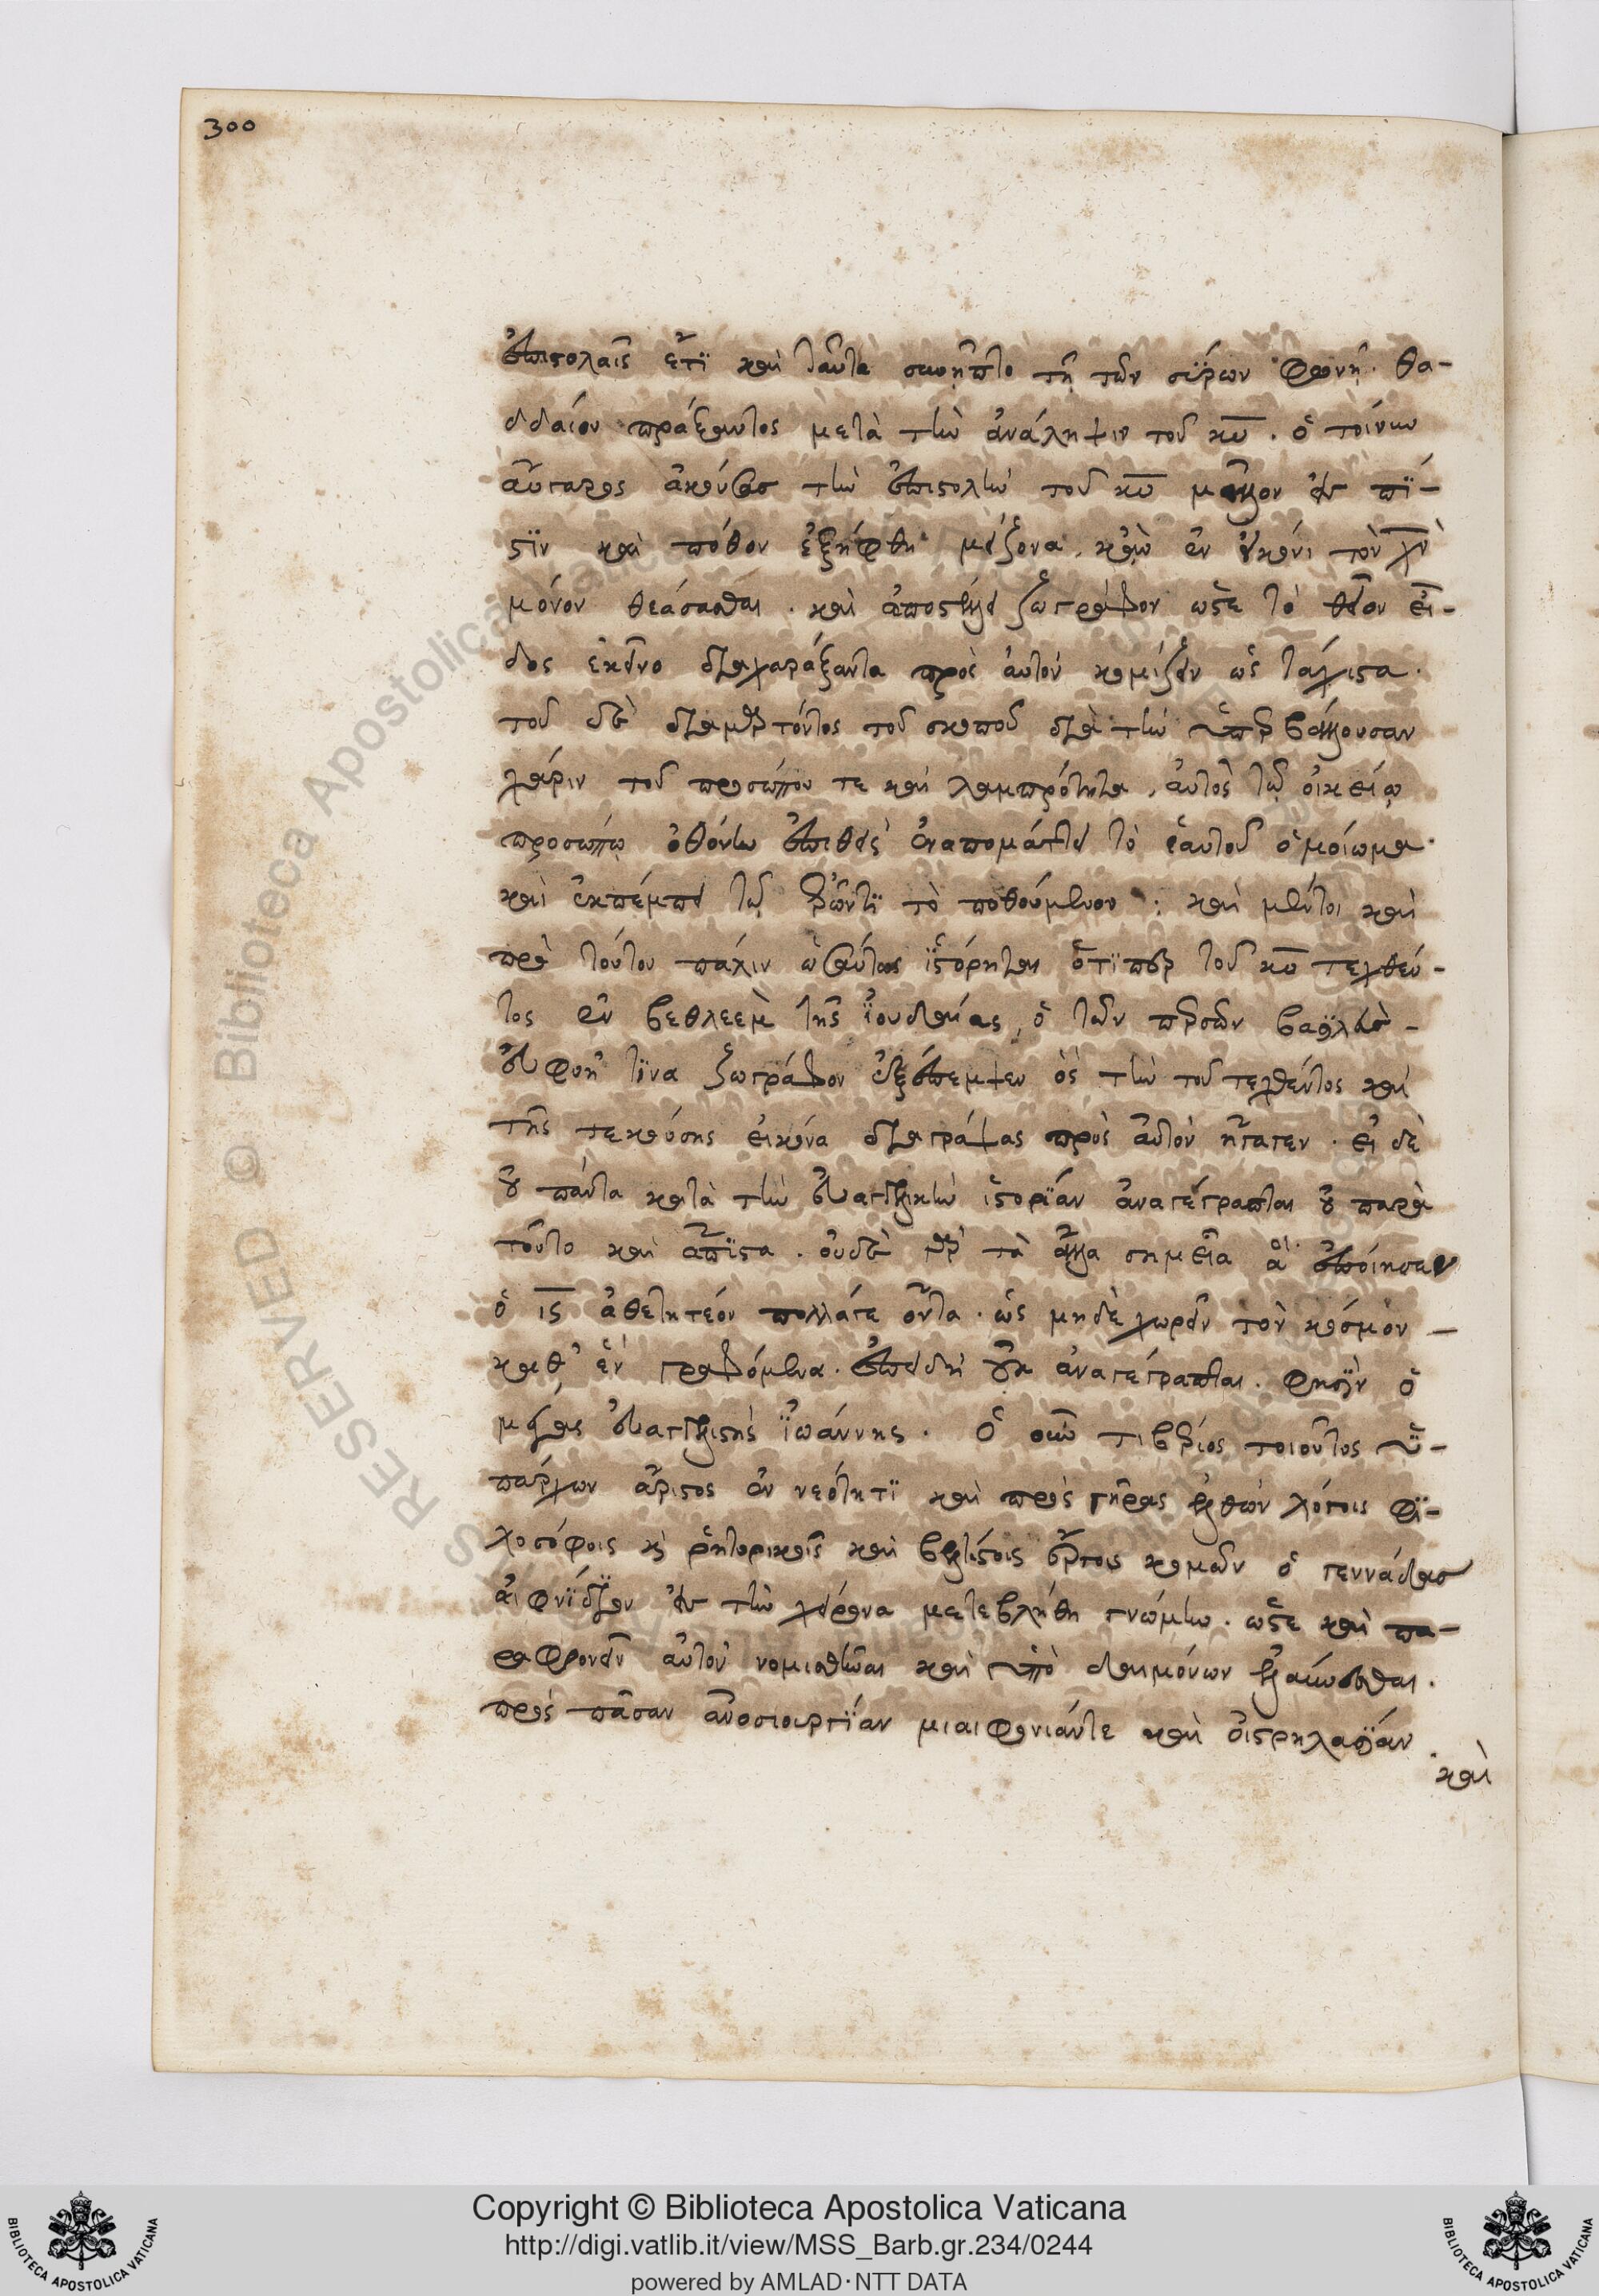 300
ἐπιστολαῖς ἔτι καὶ ταῦτα συνῆπτο τῆ τῶν σύρων φωνῆ. θα-
δδαίου πράξαντος μετὰ τὴν ἀνάληψιν τοῦ κυ. ὁ τοίνυν
αὔγαρος ἀκούσας τὴν ἐπιστολὴν τοῦ κυ μᾶλλον εἰς πί-
στιν καὶ πόθον ἐξήφθη μείζονα. κἂν ἐν εἰκόνι τὸν χν
μόνον θεάσασθαι. καὶ ἀποστέλλει ζωγράφον ὥστε τὸ θεῖον εἶ-
δος ἐκεῖνο διαχαράξαντα πρὸς αὐτὸν κομίζειν ὡς τάχιστα.
τοῦ δὲ διαμαρτόντος τοῦ σκοποῦ διὰ τὴν ὑπερβάλλουσαν
χάριν τοῦ προσώπου τε καὶ λαμπρότητα, αὐτὸς τῶ οἰκείῳ
προσώπῳ ὀθόνην ἐπιθεὶς ἐναπομάττει τὸ ἑαυτοῦ ὁμοίωμα.
καὶ ἐκπέμπει τῷ ἐρῶντι τὸ ποθούμενον: καὶ μέντοι καὶ
πρὸ τούτου πάλιν ὡσαύτως ἱστόρηται ὅτιπερ τοῦ κυ τεχθέν-
τος ἐν βεθλεεμ τῆς ἰουδαίας, ὁ τῶν περσῶν βασιλεὺς
εὐφυῆ τινα ζωγράφον ἐξέπεμψεν ὃς τὴν τοῦ τεχθέντος καὶ
τῆς τεκούσης εἰκόνα διαγράψας πρὸς αὐτὸν ἤγαγεν. εἰ δὲ
οὐ πάντα κατὰ τὴν εὐαγγελικὴν ἱστορίαν ἀναγέγραπται οὐ παρὰ
τοῦτο καὶ ἄπιστα. οὐδὲ γὰρ τὰ ἄλλα σημεῖα ἃ ἐποίησεν
ὁ ις ἀθετητέον πολλάγε ὄντα. ὡς μηδὲ χωρεῖν τὸν κόσμον
καθ' ἓν γραφόμενα. ἐπειδὴ οὐκ ἀναγέγραπται. φησὶν ὁ
μέγας εὐαγγελιστὴς ἰωάννης. Ὁ οὖν τιβέριος τοιοῦτος ὑ-
πάρχων ἄριστος ἐν νεότητι καὶ πρὸς γῆρας ἐλθὼν λόγοις φι-
λοσόφοις κ ῥητορικοῖς καὶ βελτίστοις ἔργοις κομῶν ὁ γεννάδας
αἰφνίδιον εἰς τὴν χείρονα μετεβλήθη γνώμην. ὥστε καὶ πα-
ραφρονεῖν αὐτὸν νομισθῆναι καὶ ὑπὸ δαιμόνων ἐλαύνεσθαι.
πρὸς πᾶσαν ἀνοσιουργίαν μιαιφονιάντε καὶ οἰστρηλασίαν
καὶ
Copyright © Biblioteca Apostolica Vaticana
http://digi.vatlib.it/view/MSS_Barb.gr.234/0244
powered by AMLAD·NTT DATA